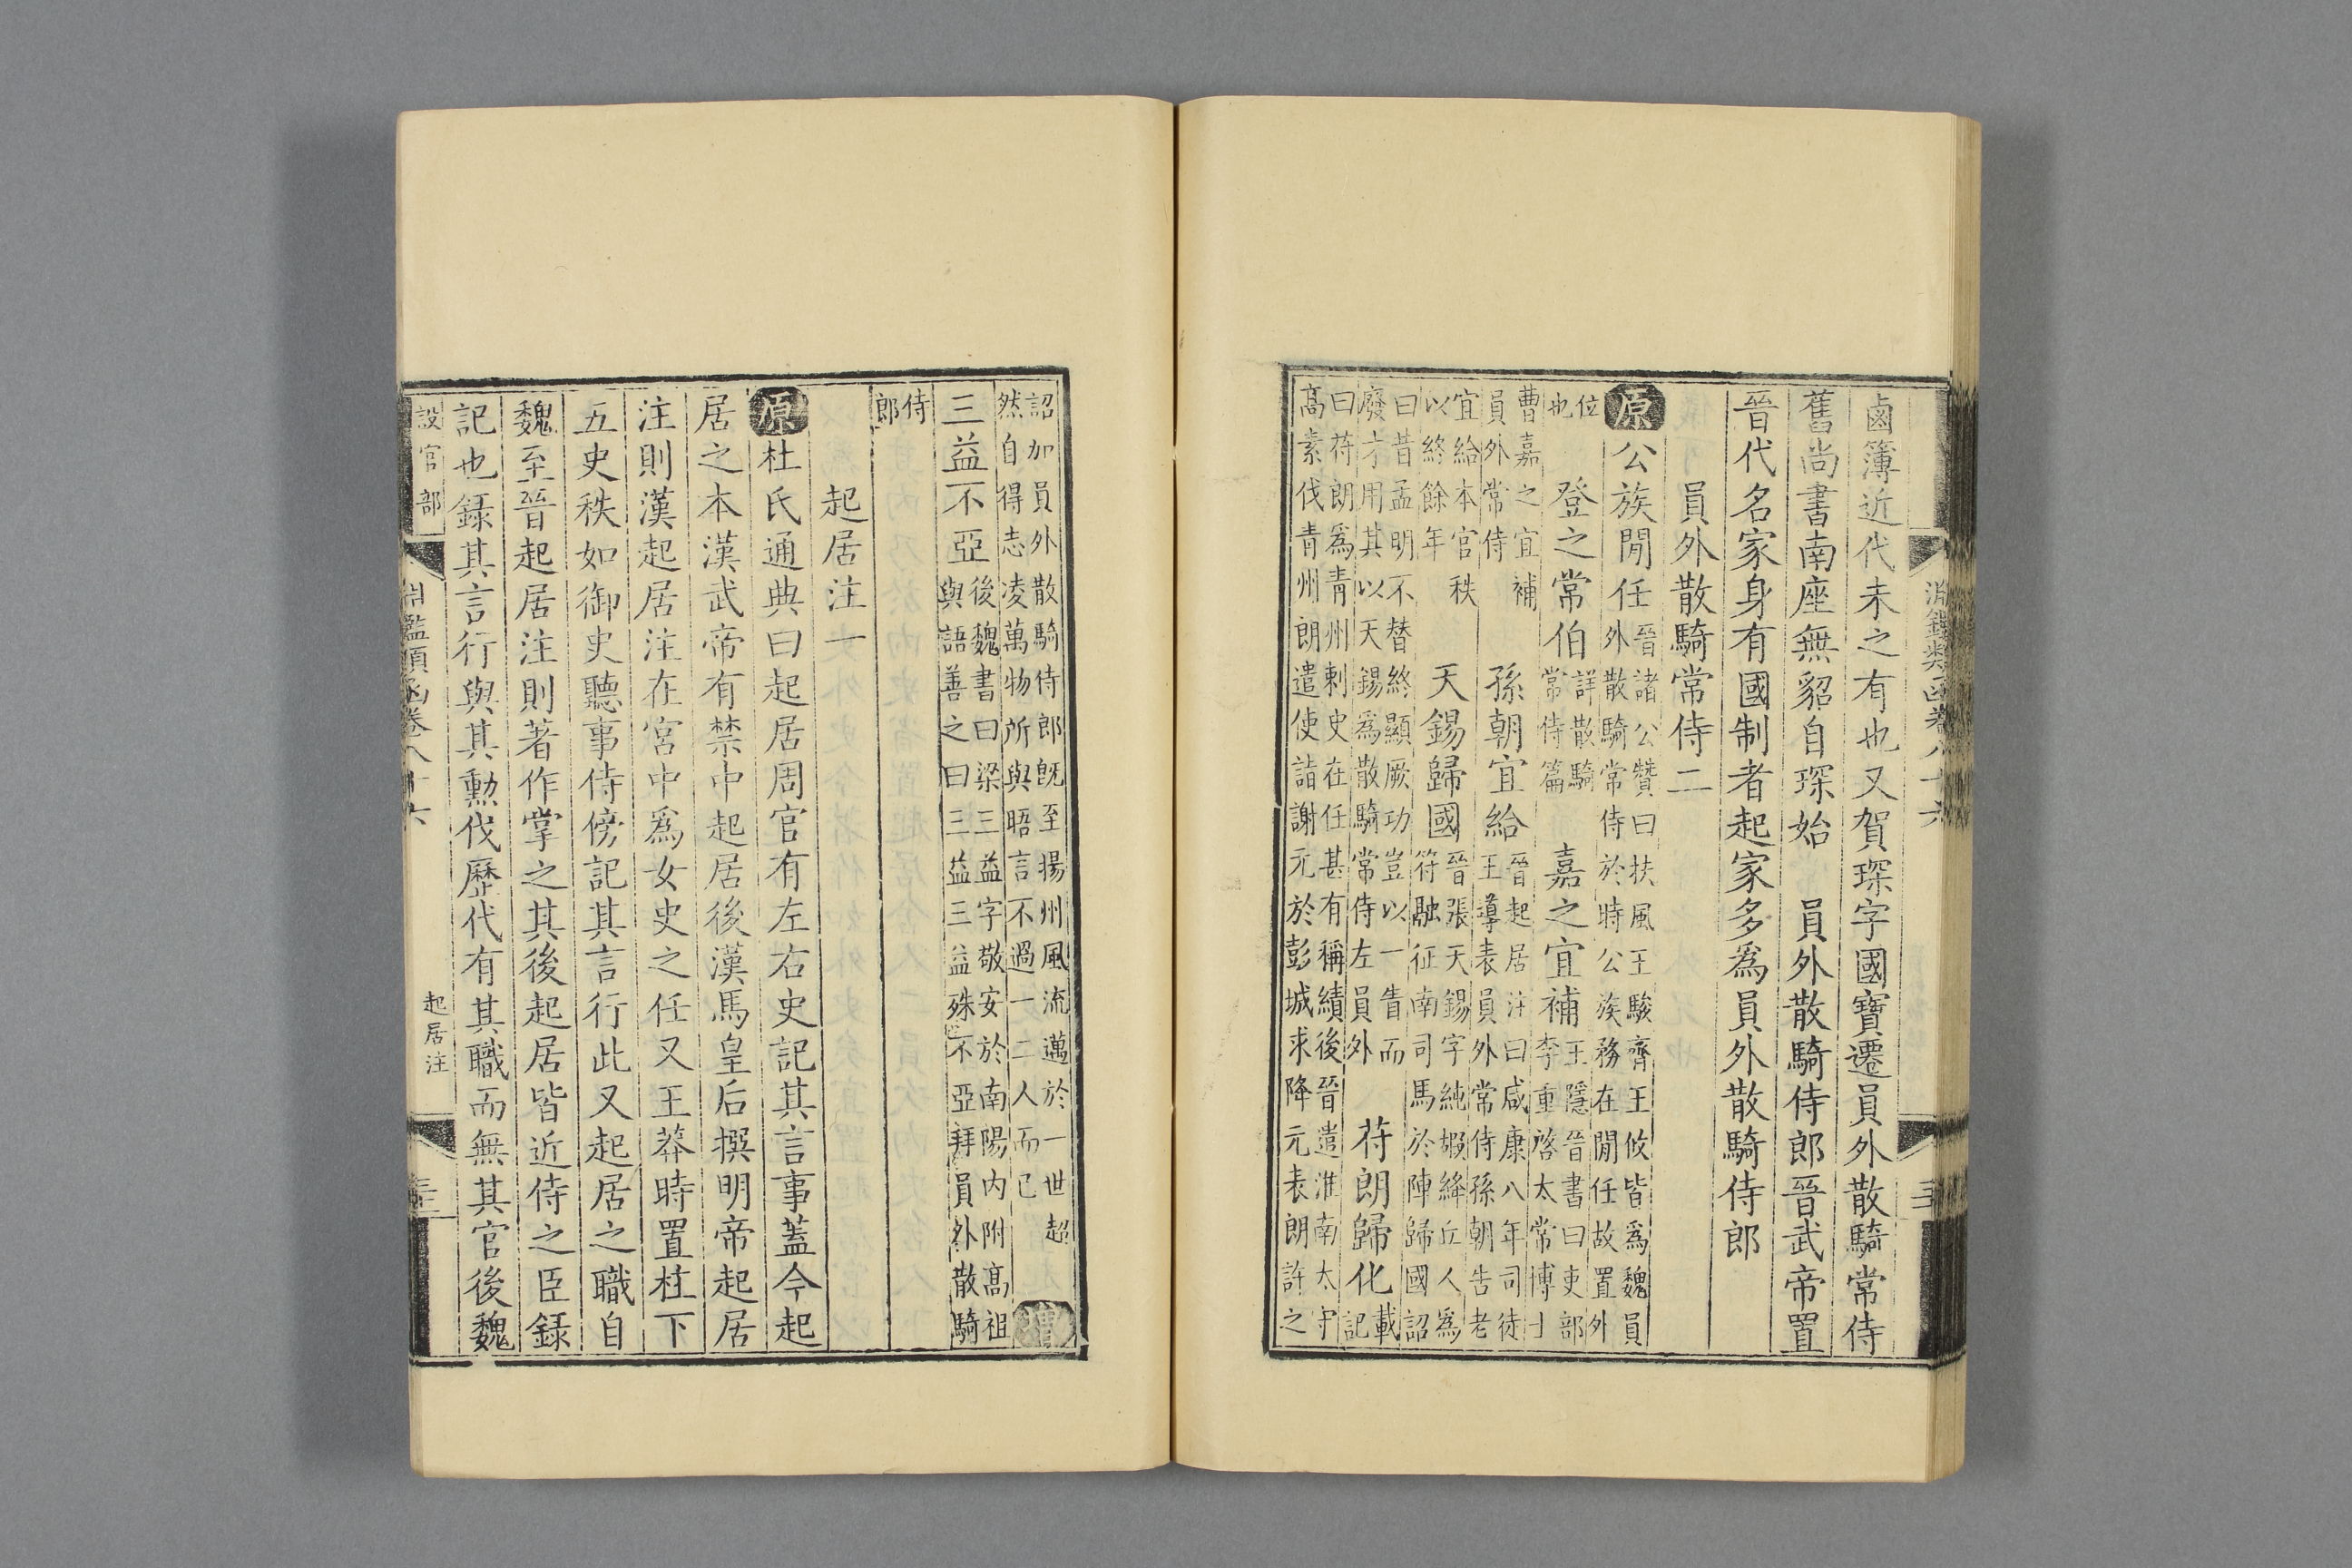 淵鑑類函卷八十六
鹵簿近代未之有也又賀琛字國寶遷員外散騎常侍
舊尚書南座無貂自琛始 員外散騎侍郎晉武帝置
晉代名家身有國制者起家多爲員外散騎侍郎
員外散騎常侍二
原 公族閒任 晉諸公贊曰扶風王駿齊王攸皆爲魏員
外散騎常侍於時公族務在閒任故置外
位
也 登之常伯 詳散騎
常侍篇 嘉之宜補 王隱晉書曰吏部
李重啓太常博士
曹嘉之宜補
員外常侍 孫朝宜給 晉起居注曰咸康八年司徒
王導表員外常侍孫朝告老
宜給本官秩
以終餘年 天錫歸國 晉張天錫字純嘏絳丘人爲
符融征南司馬於陣歸國詔
曰昔孟明不替終顯厥功豈以一眚而
廢才用其以天錫爲散騎常侍左員外 苻朗歸化 載
記
曰苻朗爲青州刺史在任甚有稱績後晉遣淮南太守
高素伐青州朗遣使詣謝元於彭城求降元表朗許之
詔加員外散騎侍郎旣至揚州風流邁於一世超
然自得志凌萬物所與晤言不過一二人而已 增
三益不亞 後魏書曰梁三益字敬安於南陽内附高祖
與語善之曰三益三益殊不亞拜員外散騎
侍
郎
起居注一
原 杜氏通典曰起居周官有左右史記其言事蓋今起
居之本漢武帝有禁中起居後漢馬皇后撰明帝起居
注則漢起居注在宮中爲女史之任又王莽時置柱下
五史秩如御史聽事侍傍記其言行此又起居之職自
魏至晉起居注則著作掌之其後起居皆近侍之臣録
記也録其言行與其勳伐歷代有其職而無其官後魏
設官部 淵鑑類函卷八十六 起居注